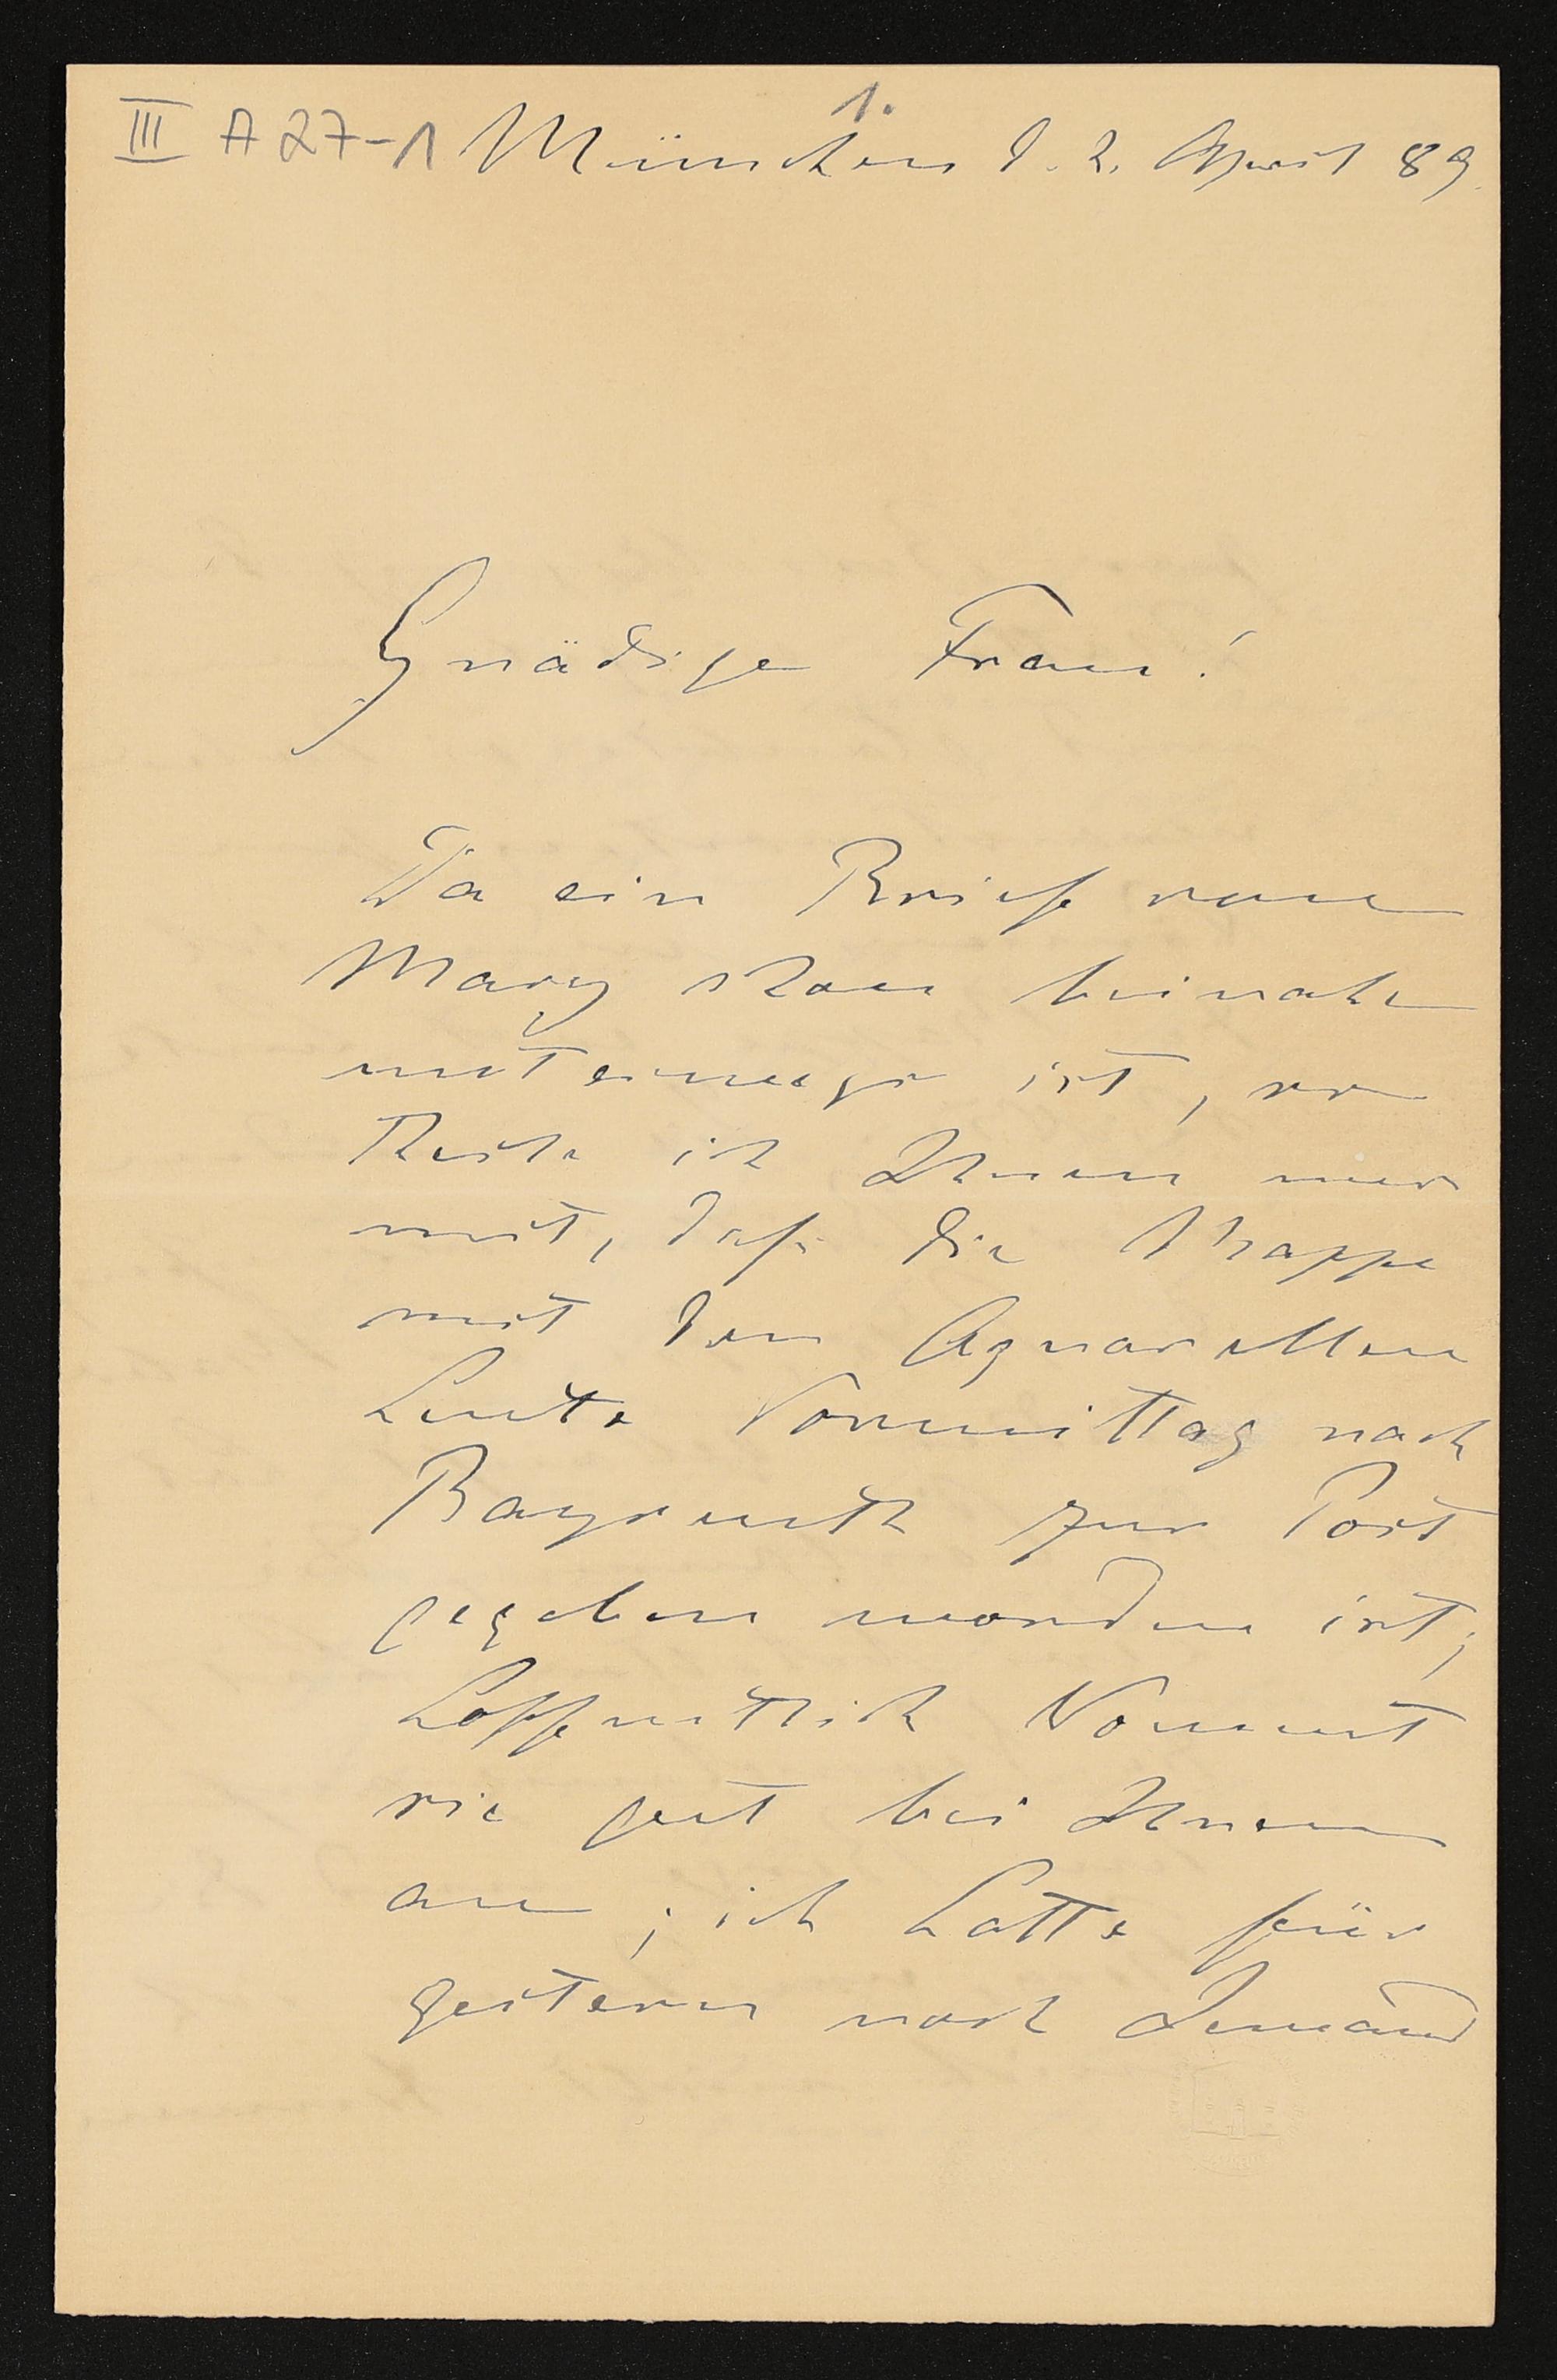 1.
III A 27-1 München d. 2. April 89.
Gnädige Frau!
Da ein Brief von
Mary schon beinahe
unterwegs ist, so
theile ich Ihnen nur
mit, daß die Mappe
mit den Aquarellen
heute Vormittag nach
Bayreuth zur Post
gegeben worden ist;
hoffentlich kommt
sie gut bei Ihnen
an; ich hatte für
gestern noch Jemand